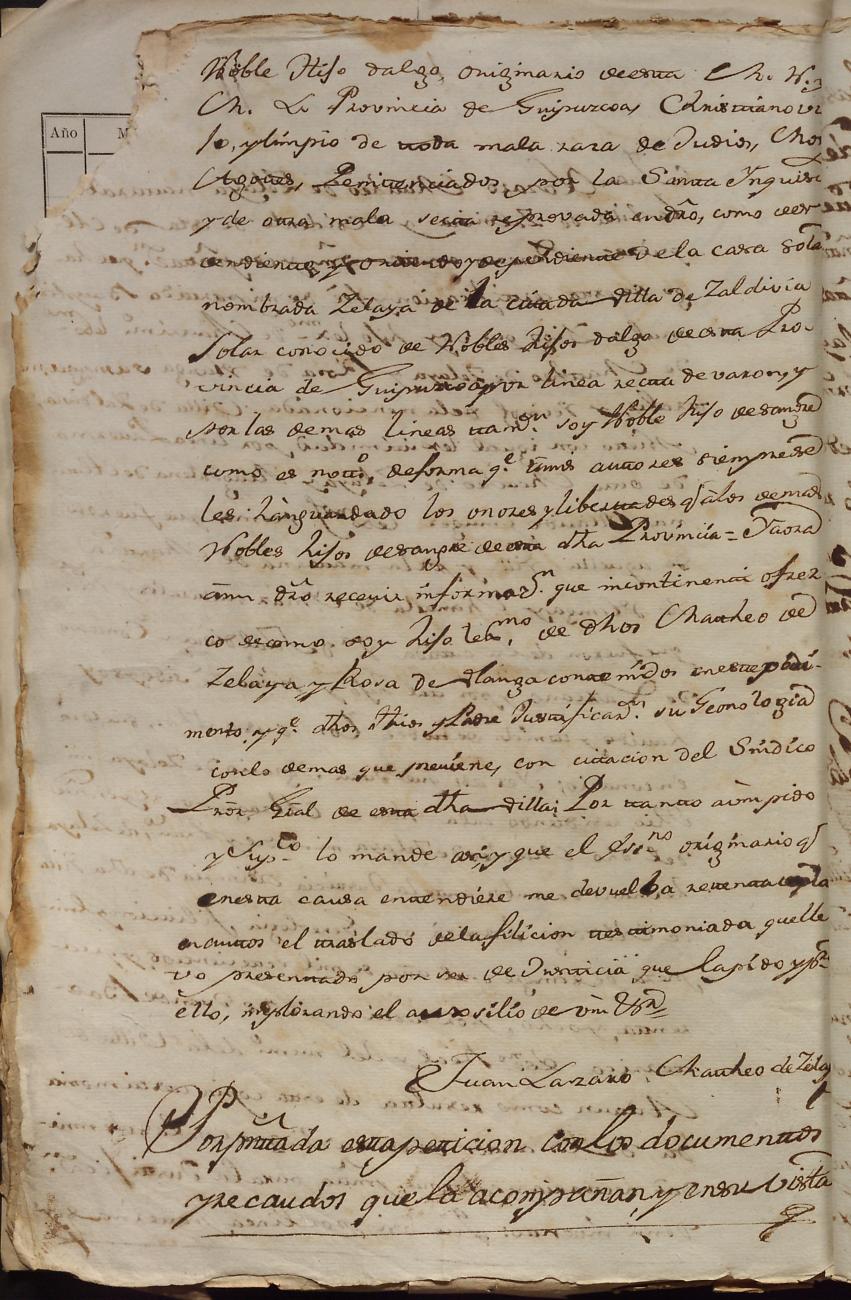 Año M
Noble Hijo dalgo, originario de esta M. N. y
M. L. Provincia de Guipuzcoa, Christiano vi
jo, y limpio de toda mala raza de Judios, Moros
Agotes, Penitenciados por la Santa Inquisi
y de otra mala secta reprovada en dro, como des
cendiente, y dependiente de la casa sola
nombrada Zelaya de la citada villa de Zaldivia
Solar conocido de Nobles hijos dalgo de esta Pro-
vincia de Guipuzcoa, por linea recta de varon, y
por las demas lineas tamvn. soy Noble hijo de sangre
como es nottº, de forma qe. a mis autores siempre se
les han guardado los onores y libertades q a los demas
Nobles hijos de sangre de esta dha Provincia = Y aora
a mi dro recevir informazn. que incontinenti ofrez
co de como soy hijo lexmo. de dhos Matheo de
Zelaya y Rosa de contenidos en este pedi-
mento y qe. dhos mios y Padre Justificaran. su Genologia
con lo demas que previene, con citacion del Sindico
Pror. Gral de esta dha villa; Por tanto a vm pido
y Supco lo mande asi, y que el essno originario q
en esta causa entendiere me devuelba
en autos el traslado de la filicion testimoniada que lle
vo presentado por ser de Justicia que la pido y pª
ello, implorando el auxosilio de vm Vsa
Juan Lazaro Matheo de Zelaya
Por prntada esta peticion con los documentos
y recaudos que la acompañan, y en su vista